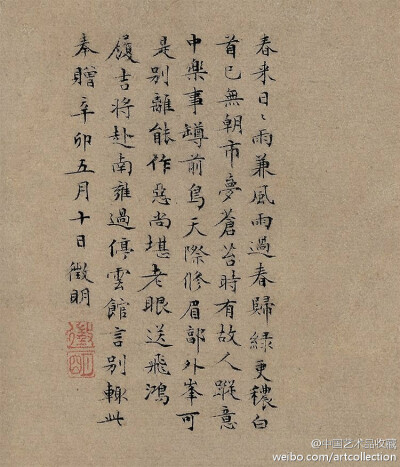 春来日〻雨兼風雨過春歸綠更穠白
首已無朝市夢蒼苔時有故人蹤意
中樂事罇前鳥天際修眉郭外峯可
是别離能作惡尚堪老眼送飛鴻
履吉將赴南雍過停雲館言别輙此
奉贈辛卯五月十日徵明
徵明
@中国艺术品收藏
weibo.com/artcollection